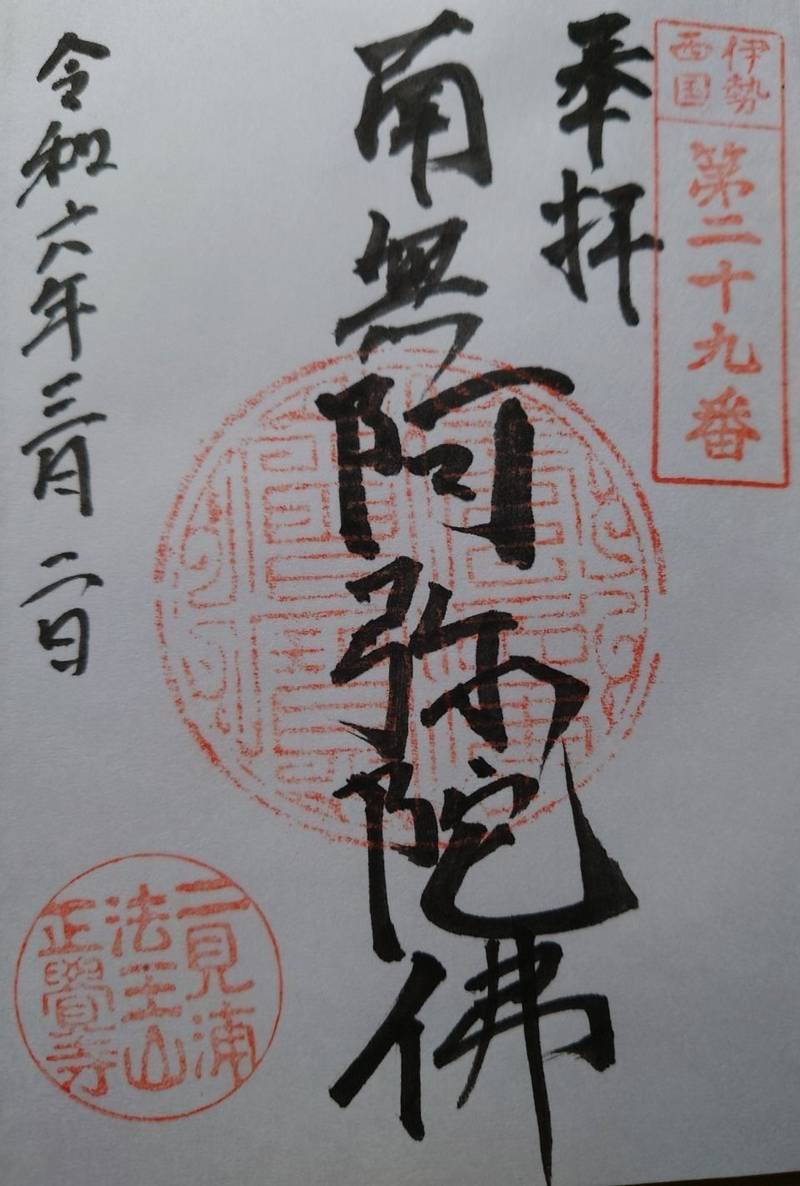 伊勢
西国
第二十九番
奉拝
南無阿弥陀佛
令和六年三月二日
二見浦
法王山
正覺寺